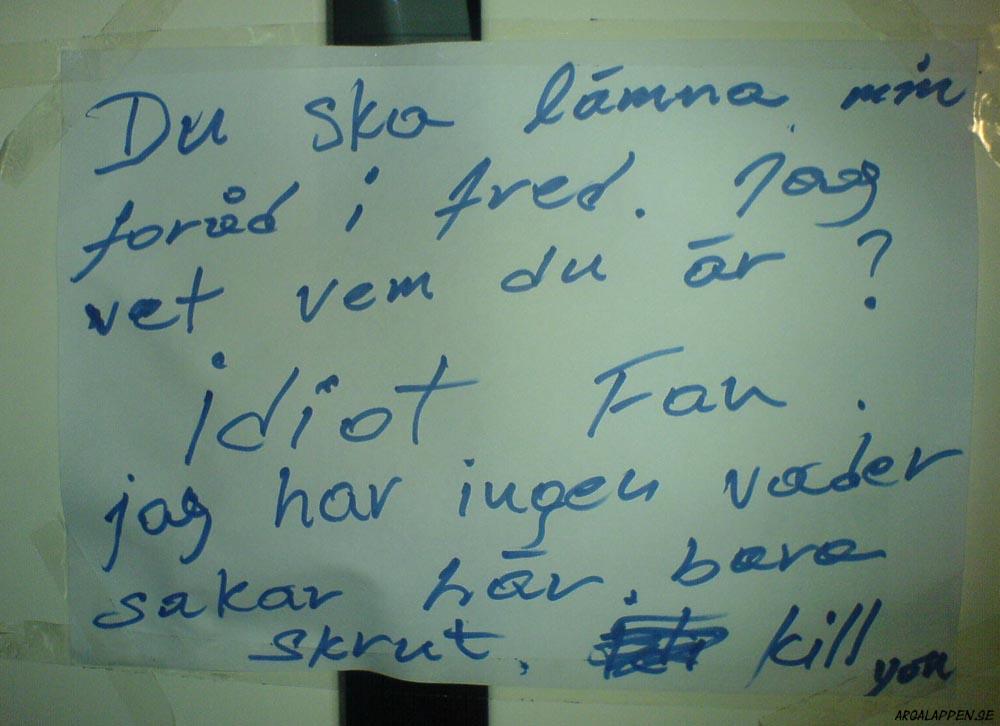 Du ska lämna min
foråd i fred. Jag
vet vem du är ?
idiot Fan .
jag har ingen vader
sakar här. bara
skrut, kill you
ARGALAPPEN.SE